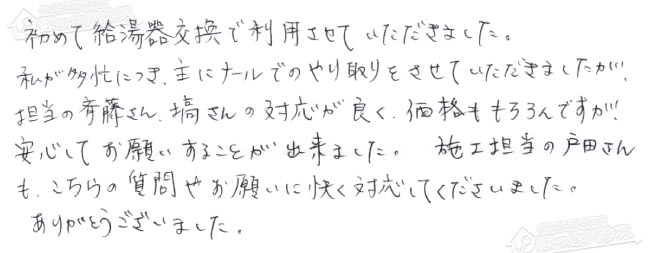 初めて給湯器交換で利用させていただきました。
私が多忙につき、主にメールでのやり取りをさせていただきましたが、
担当の斉藤さん、塙さんの対応が良く、価格ももちろんですが、
安心してお願いすることが出来ました。 施工担当の戸田さん
も、こちらの質問やお願いに快く対応してくださいました。
ありがとうございました。